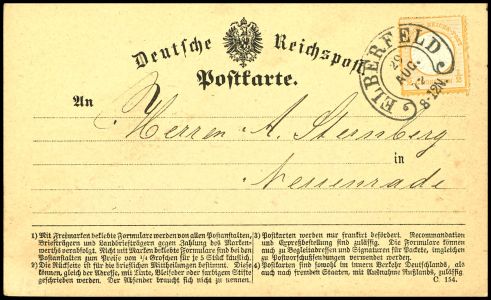 Deutsche Reichspost
Postkarte.
ELBERFELD
29
AUG.
72
8-12N.
An
Herren A. Sternberg
in
Neuenrade
1) Mit Freimarken beklebte Formulare werden von allen Postanstalten,
Briefträgern und Landbriefträgern gegen Zahlung des Marken-
werths verabfolgt. Nicht mit Marken beklebte Formulare sind bei den
Postanstalten zum Preise von 1/4 Groschen für je 5 Stück käuflich.
2) Die Rückseite ist für die brieflichen Mittheilungen bestimmt. Diese
können, gleich der Adresse, mit Tinte, Bleifeder oder farbigem Stifte
geschrieben werden. Der Absender braucht sich nicht zu nennen.
3) Postkarten werden nur frankirt befördert. Recommandation
und Expreßbestellung sind zulässig. Die Formulare können
auch zu Begleitadressen und Signaturen für Packete, ungleichen
zu Postvorschußsendungen verwendet werden.
4) Postkarten sind sowohl im innern Verkehr Deutschlands, als
auch nach fremden Staaten, mit Ausnahme Rußlands, zulässig.
C. 154.